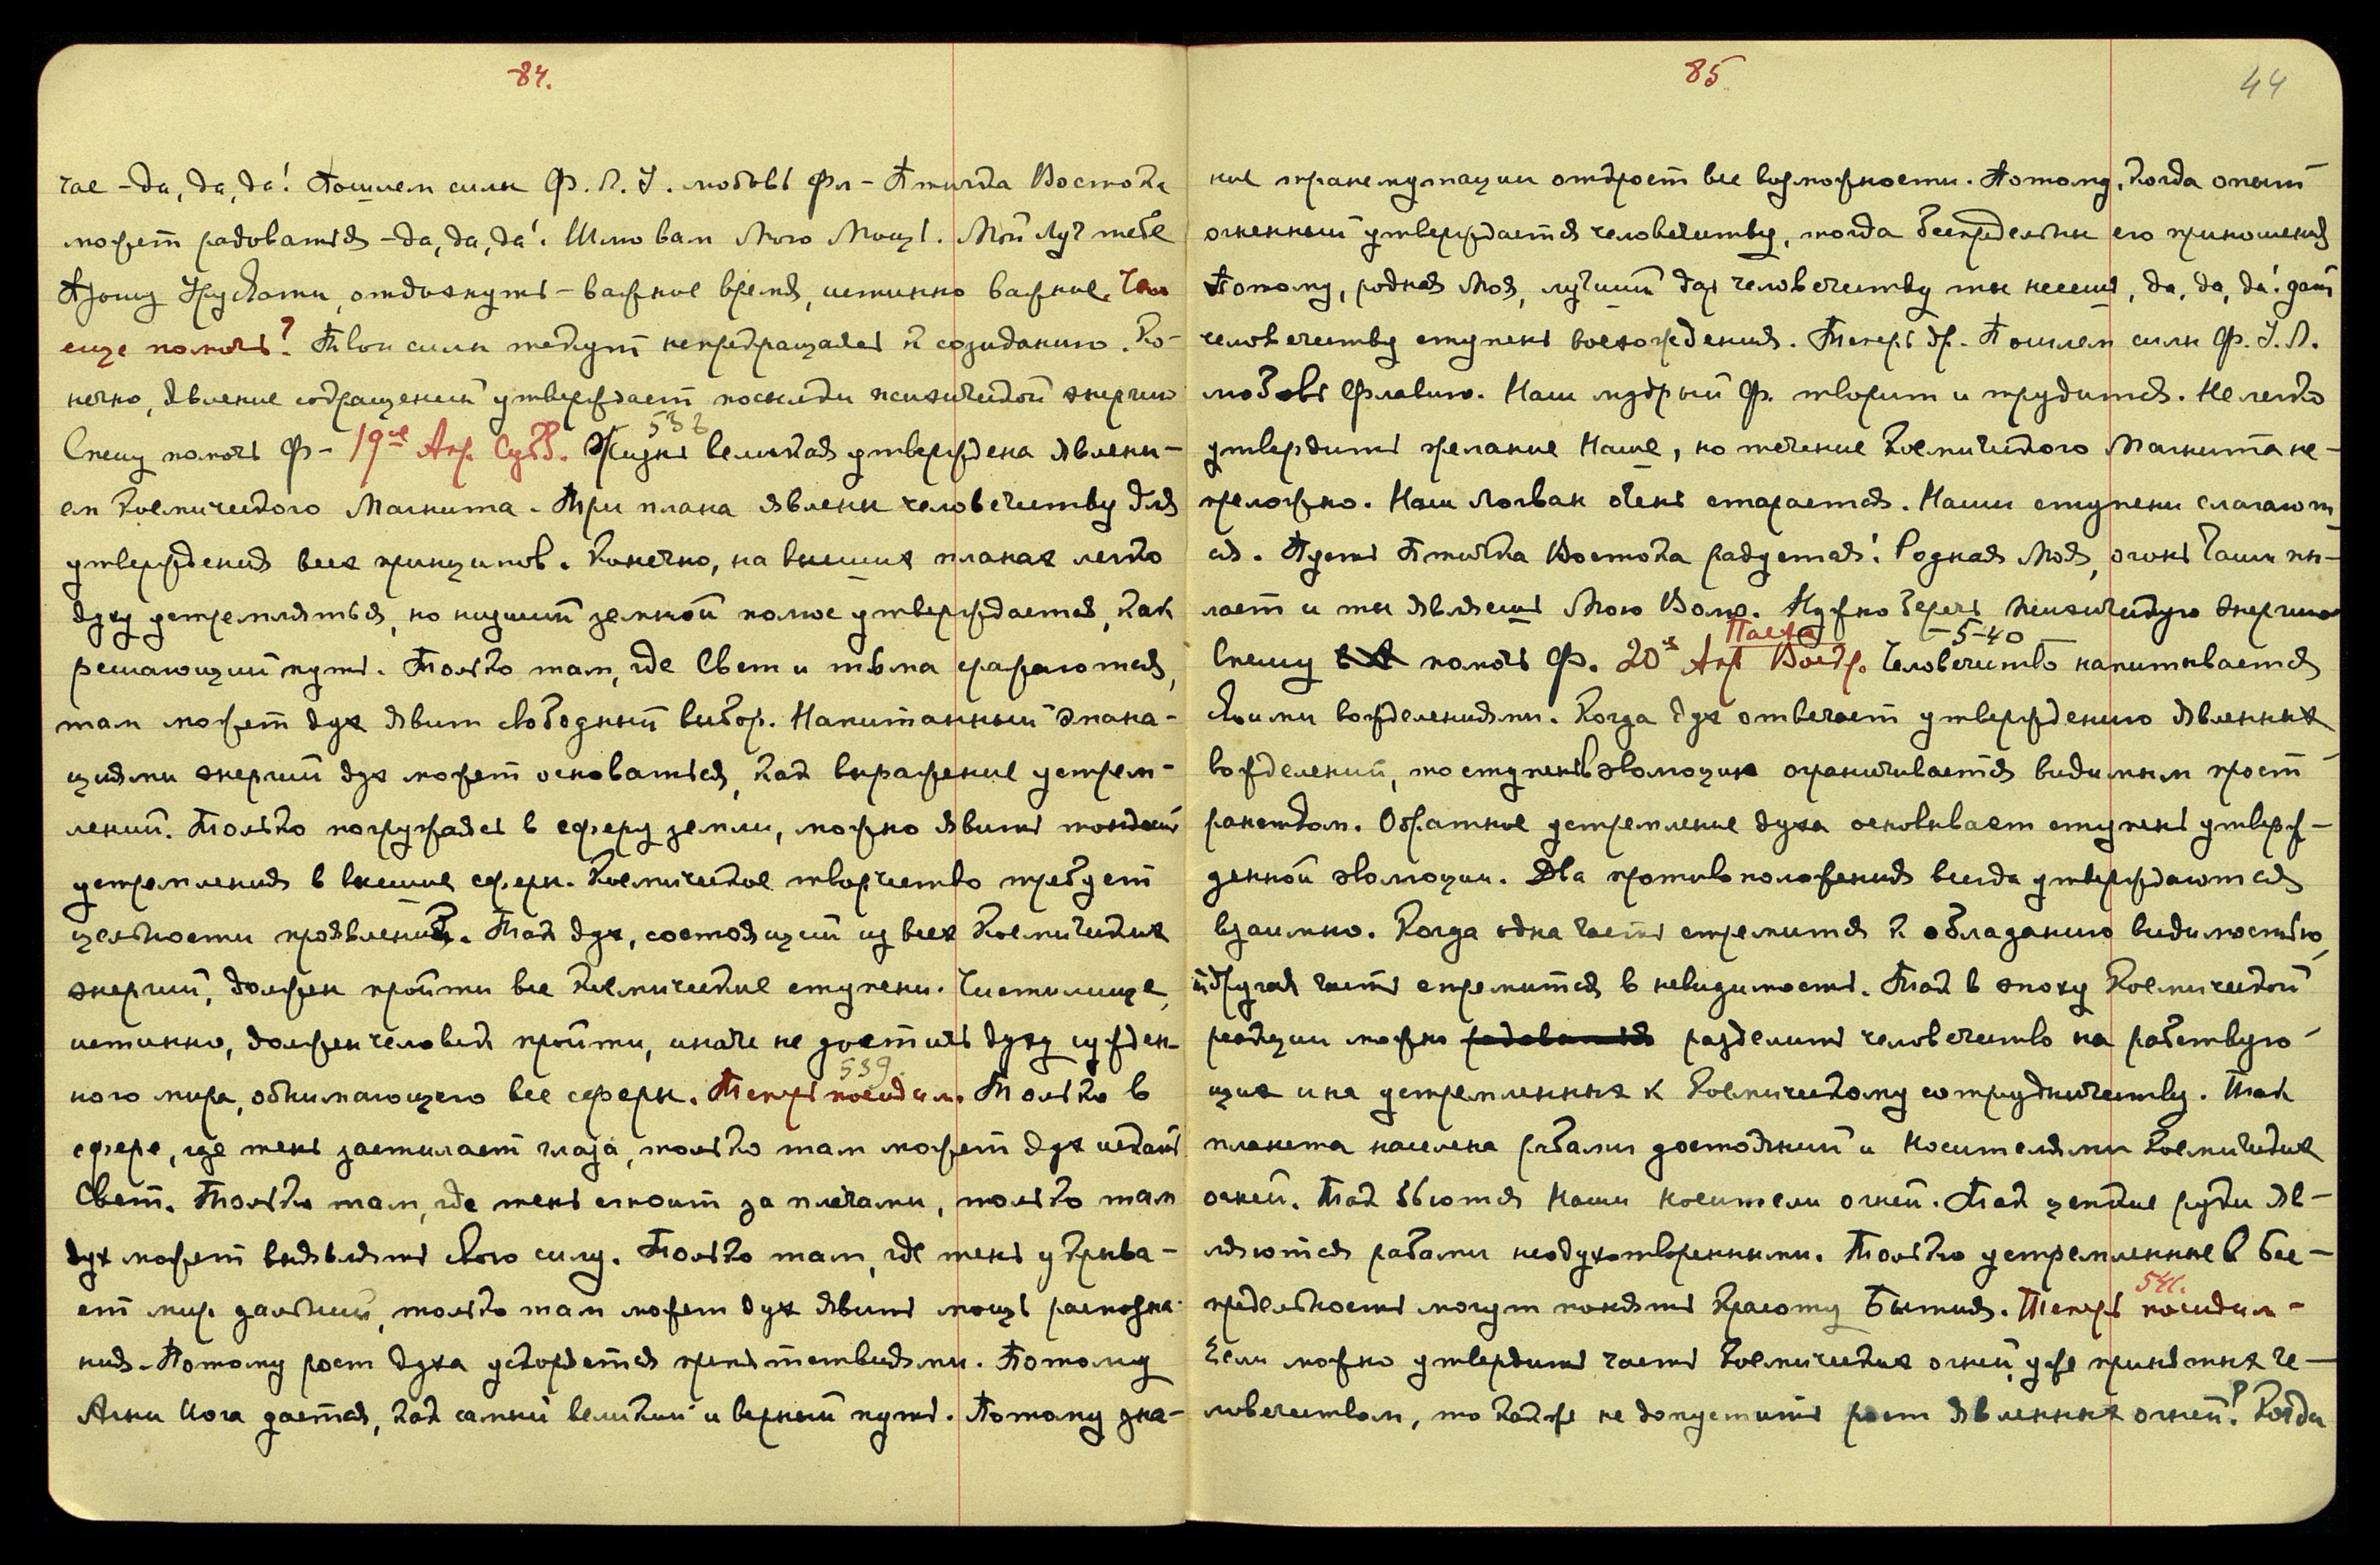 84.
чае - да, да, да! Пошлем силы Ф. Л. У. любовь Фл - Птичка Востока
может радоваться - да, да, да! Шлю вам Мою Мощь. Мой Луч тебе
Прошу Урусвати, отдохнуть - важное время, истинно важное. Чем
еще помочь? Твои силы текут непрекращаясь к созиданию. Ко-
нечно, явление сокращений утверждает посылки психической энергии
538
Спешу помочь Ф - 19ое Апр. Субб. Жизнь великая утверждена явлени-
ем Космического Магнита. Три плана явлены человечеству для
утверждения всех принципов. Конечно, на высших планах легко
духу устремляться, но низший земной полюс утверждается, как
решающий путь. Только там, где Свет и тьма сражаются,
там может дух явит свободный выбор. Напитанный эмана-
циями энергий дух может основаться, как выражение устрем-
лений. Только погружаясь в сферу земли, можно явить
устремления в высшие сферы. Космическое творчество требует
цельности проявлений. Так дух, состоящий из всех Космических
энергий, должен пройти все Космические ступени. Чистилище,
истинно, должен человек пройти, иначе не достичь духу сужден-
539.
ного мира, обнимающего все сферы. Теперь посидим. Только в
сфере, где тень застилает глаза, только там может дух искать
Свет. Только там, где тень стоит за плечами, только там
дух может выявлять свою силу. Только там, где тень укрыва-
ет мир дальний, только там может дух явить мощь распозна-
ния. Потому рост духа ускоряется препятствиями. Потому
Агни Йога дается, как самый великий и верный путь. Потому зна-
85.
44
ние трансмутации откроет все возможности. Потому, когда опыт
огненный утверждается человечеству, тогда беспредельны его приношения
Потому, родная Моя, лучший дар человечеству ты несешь, да, да, да! дашь
человечеству ступень восхождения. Теперь др. Пошлем силы Ф. У. Л.
любовь Флавию. Наш мудрый Ф. творит и трудится. Не легко
утвердить желание Наше, но течение Космического Магнита не-
преложно. Наш Логван очень старается. Наши ступени слагают-
ся. Пусть Птичка Востока радуется! Родная Моя, огонь Чаши пы-
лает и ты являешь Мою Волю. Нужно беречь психическую энергию
Пасха
-540
Спешу помочь Ф. 20е Апр Воскр. Человечество напитывается
своими вожделениями. Когда дух отвечает утверждению явленных
вожделений, то ступень эволюции ограничивается видимым прост
ранством. Обратное устремление духа основывает ступень утверж-
денной эволюции. Два противоположения всегда утверждаются
взаимно. Когда одна часть стремится к обладанию видимостью,
другая часть стремится в невидимость. Так в эпоху Космической
реакции можно радоваться разделить человечество на рабствую-
щих и на устремленных к Космическому сотрудничеству. Так
планета населена рабами достояний и носителями Космических
огней. Так бьются Наши носители огней. Так цепкие руки яв-
ляются рабами неодухотворенными. Только устремленные в бес-
541.
предельность могут понять Красоту Бытия. Теперь посидим -
Если можно утвердить часть Космических огней, уже принятых че-
ловечеством, то как же не допустить рост явленных огней? Когда